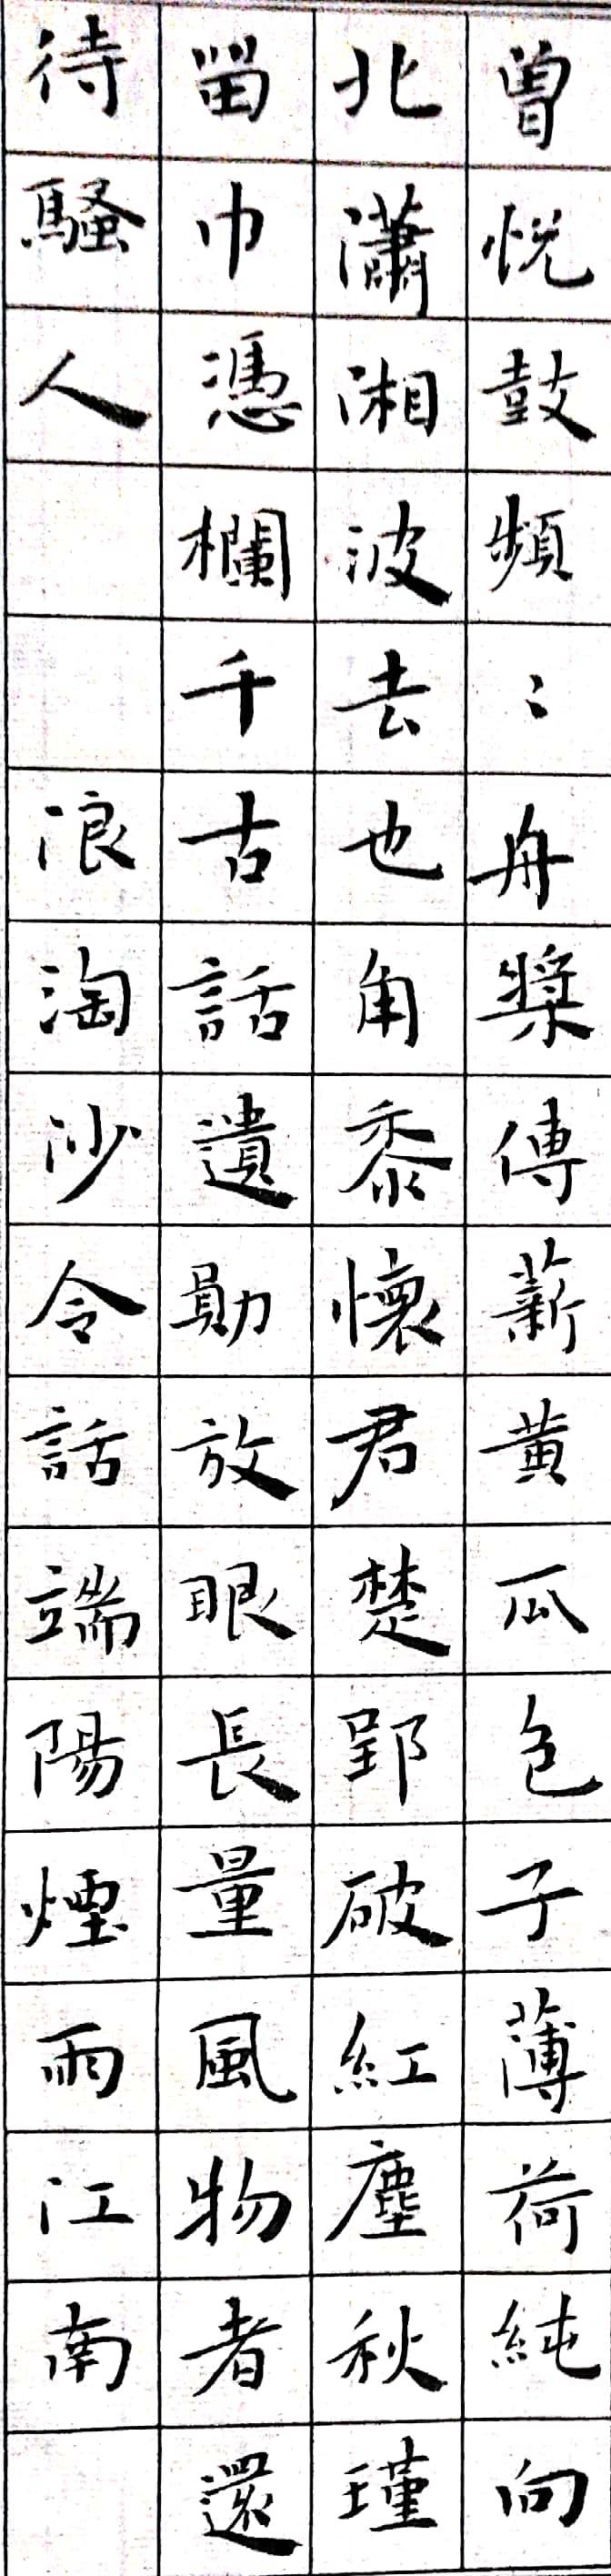 曾悅鼓頻〻舟槳傳薪黃瓜包子薄荷純向
北瀟湘波去也角黍懷君楚郢破紅塵秋瑾
留巾憑欄千古話遺勛放眼長量風物者還
待騷人 浪淘沙令話端陽煙雨江南